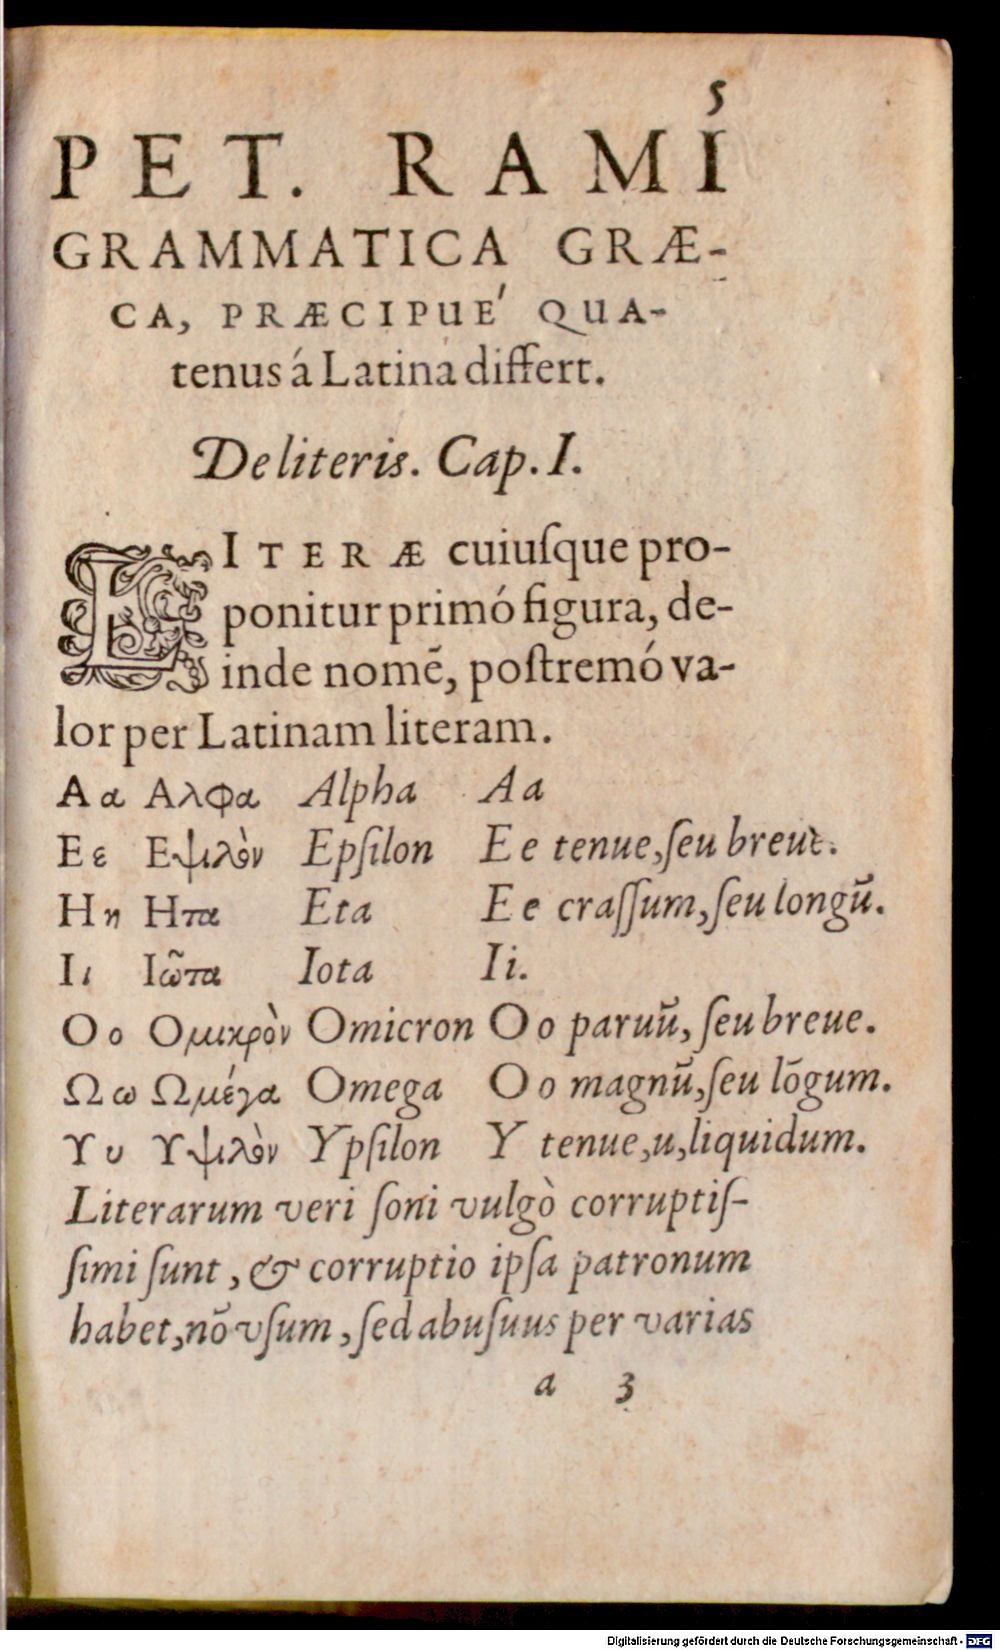 5
PET. RAMI
GRAMMATICA GRÆ-
CA, PRÆCIPUE´ QUA-
tenus á Latina differt.
De literis. Cap. I.
LITERÆ cuiuſque pro-
ponitur primó figura, de-
inde nomẽ, poſtremó va-
lor per Latinam literam.
Α α Αλφα Alpha A a
Ε ε Εψιλὸν Epſilon E e tenue, ſeu breue.
Η η Ητα Eta E e craſſum, ſeu longũ.
Ι ι Ιῶτα Iota I i.
Ο ο Ομικρὸν Omicron O o paruũ, ſeu breue.
Ω ω Ωμέγα Omega O o magnũ, ſeu lõgum.
Υ υ Υψιλὸν Ypſilon Y tenue, u, liquidum.
Literarum veri ſoni vulgò corruptiſ-
ſimi ſunt, & corruptio ipſa patronum
habet, nõ vſum, ſed abuſuus per varias
a 3
Digitalisierung gefördert durch die Deutsche Forschungsgemeinschaft - DFG